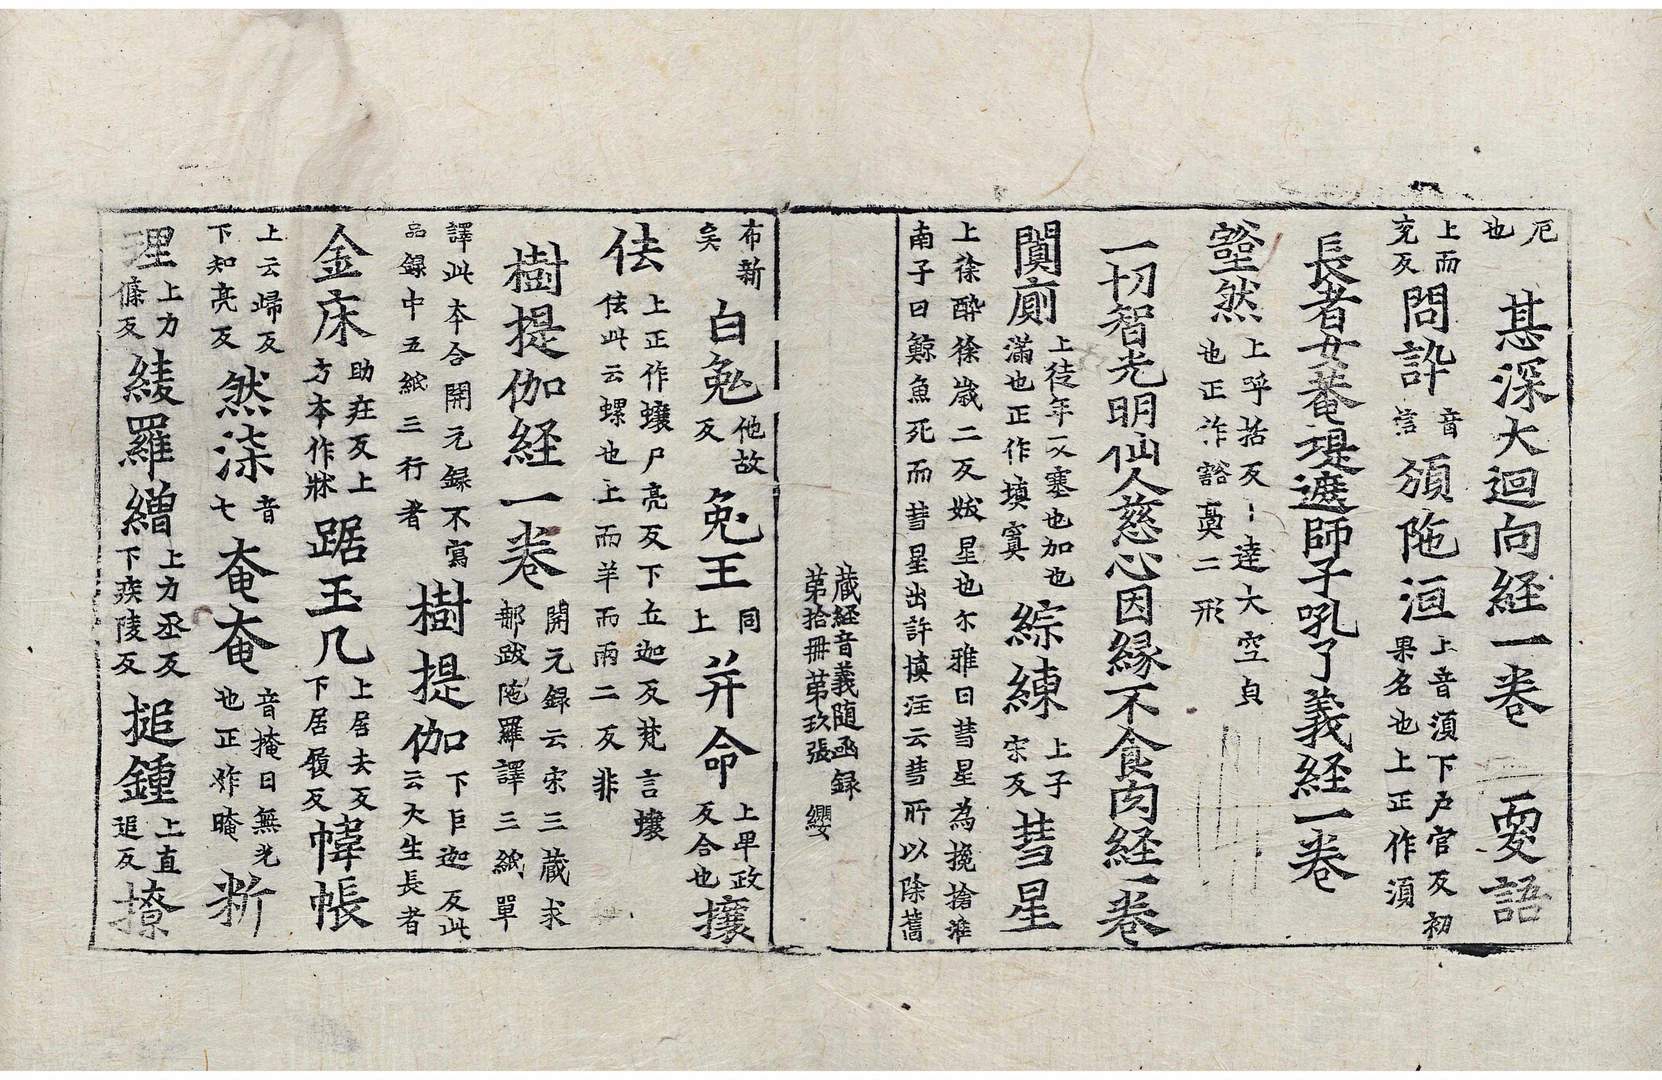 厄也 甚深大迴向経一卷 耎語
上而兖反 問訙 音信 須陁洹 上音湏下戸官反初果名也上正作湏
長者女菴提遮師子吼了義経一卷
豁然 上呼括反達大空皃也正作豁𡙇二形
一切智光明仙人慈心因縁不食肉経一卷
闐廁 上徒年反塞也加也滿也正作填窴 綜練 上子宋反 彗星
上徐醉徐歳二反妭星也尓雅曰彗星為攙搶淮南子曰鯨魚死而彗星出許慎注云彗所以除舊
布新矣 白兔 他故反 兔王 同上 并命 上畢政反合也 攘
佉 上正作蠰尸亮反下丘迦反梵言蠰佉此云螺也上而羊而兩二反非
樹提伽経一卷 開元録云宋三藏求那跋陁羅譯三紙單
譯此本合開元録不寫品録中五紙三行者 樹提伽 下巨迦反此云火生長者
金床 助庄反上方本作牀 踞玉几 上居去反下居履反 幃帳
上云歸反下知亮反 然柒 音七 奄奄 音掩日無光也正作晻 新
理 上力條反 綾羅繒 上力丞反下疾陵反 搥鍾 上直追反 撩
藏経音義随函録
第拾冊第玖張 纓